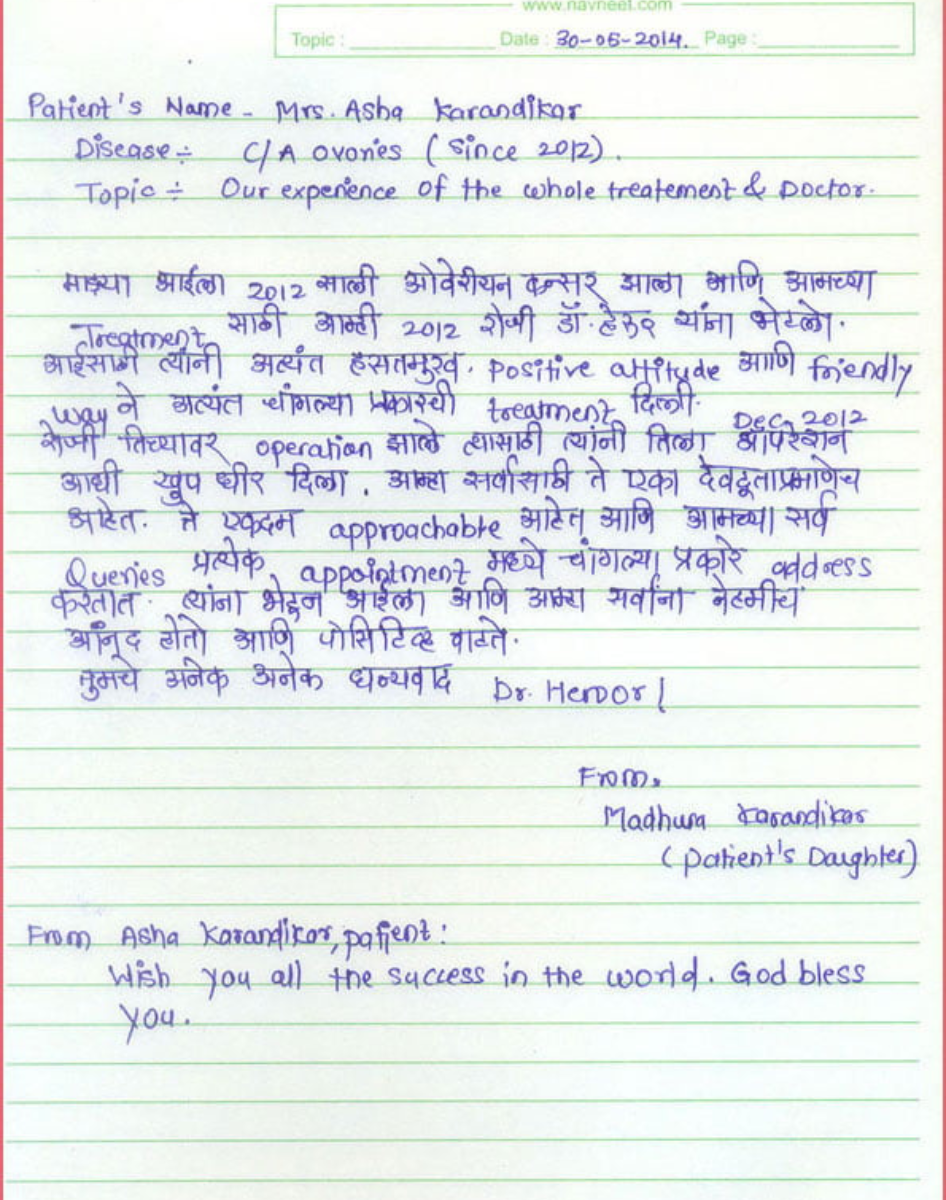 www.navneet.com
Topic : Date : 30-05-2014. Page :
Patient's Name - Mrs. Asha Karandikar
Disease ÷ C/A ovories (since 2012).
Topic ÷ Our experience of the whole treatement & Doctor.
माझ्या आईला 2012 साली ओवेरीयन कॅन्सर झाला आणि आमच्या
Treatment साठी आम्ही 2012 रोजी डॉ. हेरूर यांना भेटलो.
आईसाठी त्यांनी अत्यंत हसतमुख, positive attitude आणि friendly
way ने अत्यंत चांगल्या प्रकारची treatment दिली. Dec 2012
रोजी तिच्यावर operation झाले त्यासाठी त्यांनी तिला ऑपरेशन
आधी खुप धीर दिला. आम्हा सर्वांसाठी ते एका देवदूताप्रमाणेच
आहेत. ते एकदम approachable आहेत आणि आमच्या सर्व
Queries प्रत्येक appointment मध्ये चांगल्या प्रकारे address
करतात. त्यांना भेटून आईला आणि आम्हा सर्वांना नेहमीच
आनंद होतो आणि पोसिटिव्ह वाटते.
तुमचे अनेक अनेक धन्यवाद Dr. Heroor!
From,
Madhura Karandikar
(patient's Daughter)
From Asha Karandikar, patient:
Wish you all the success in the world. God bless
you.